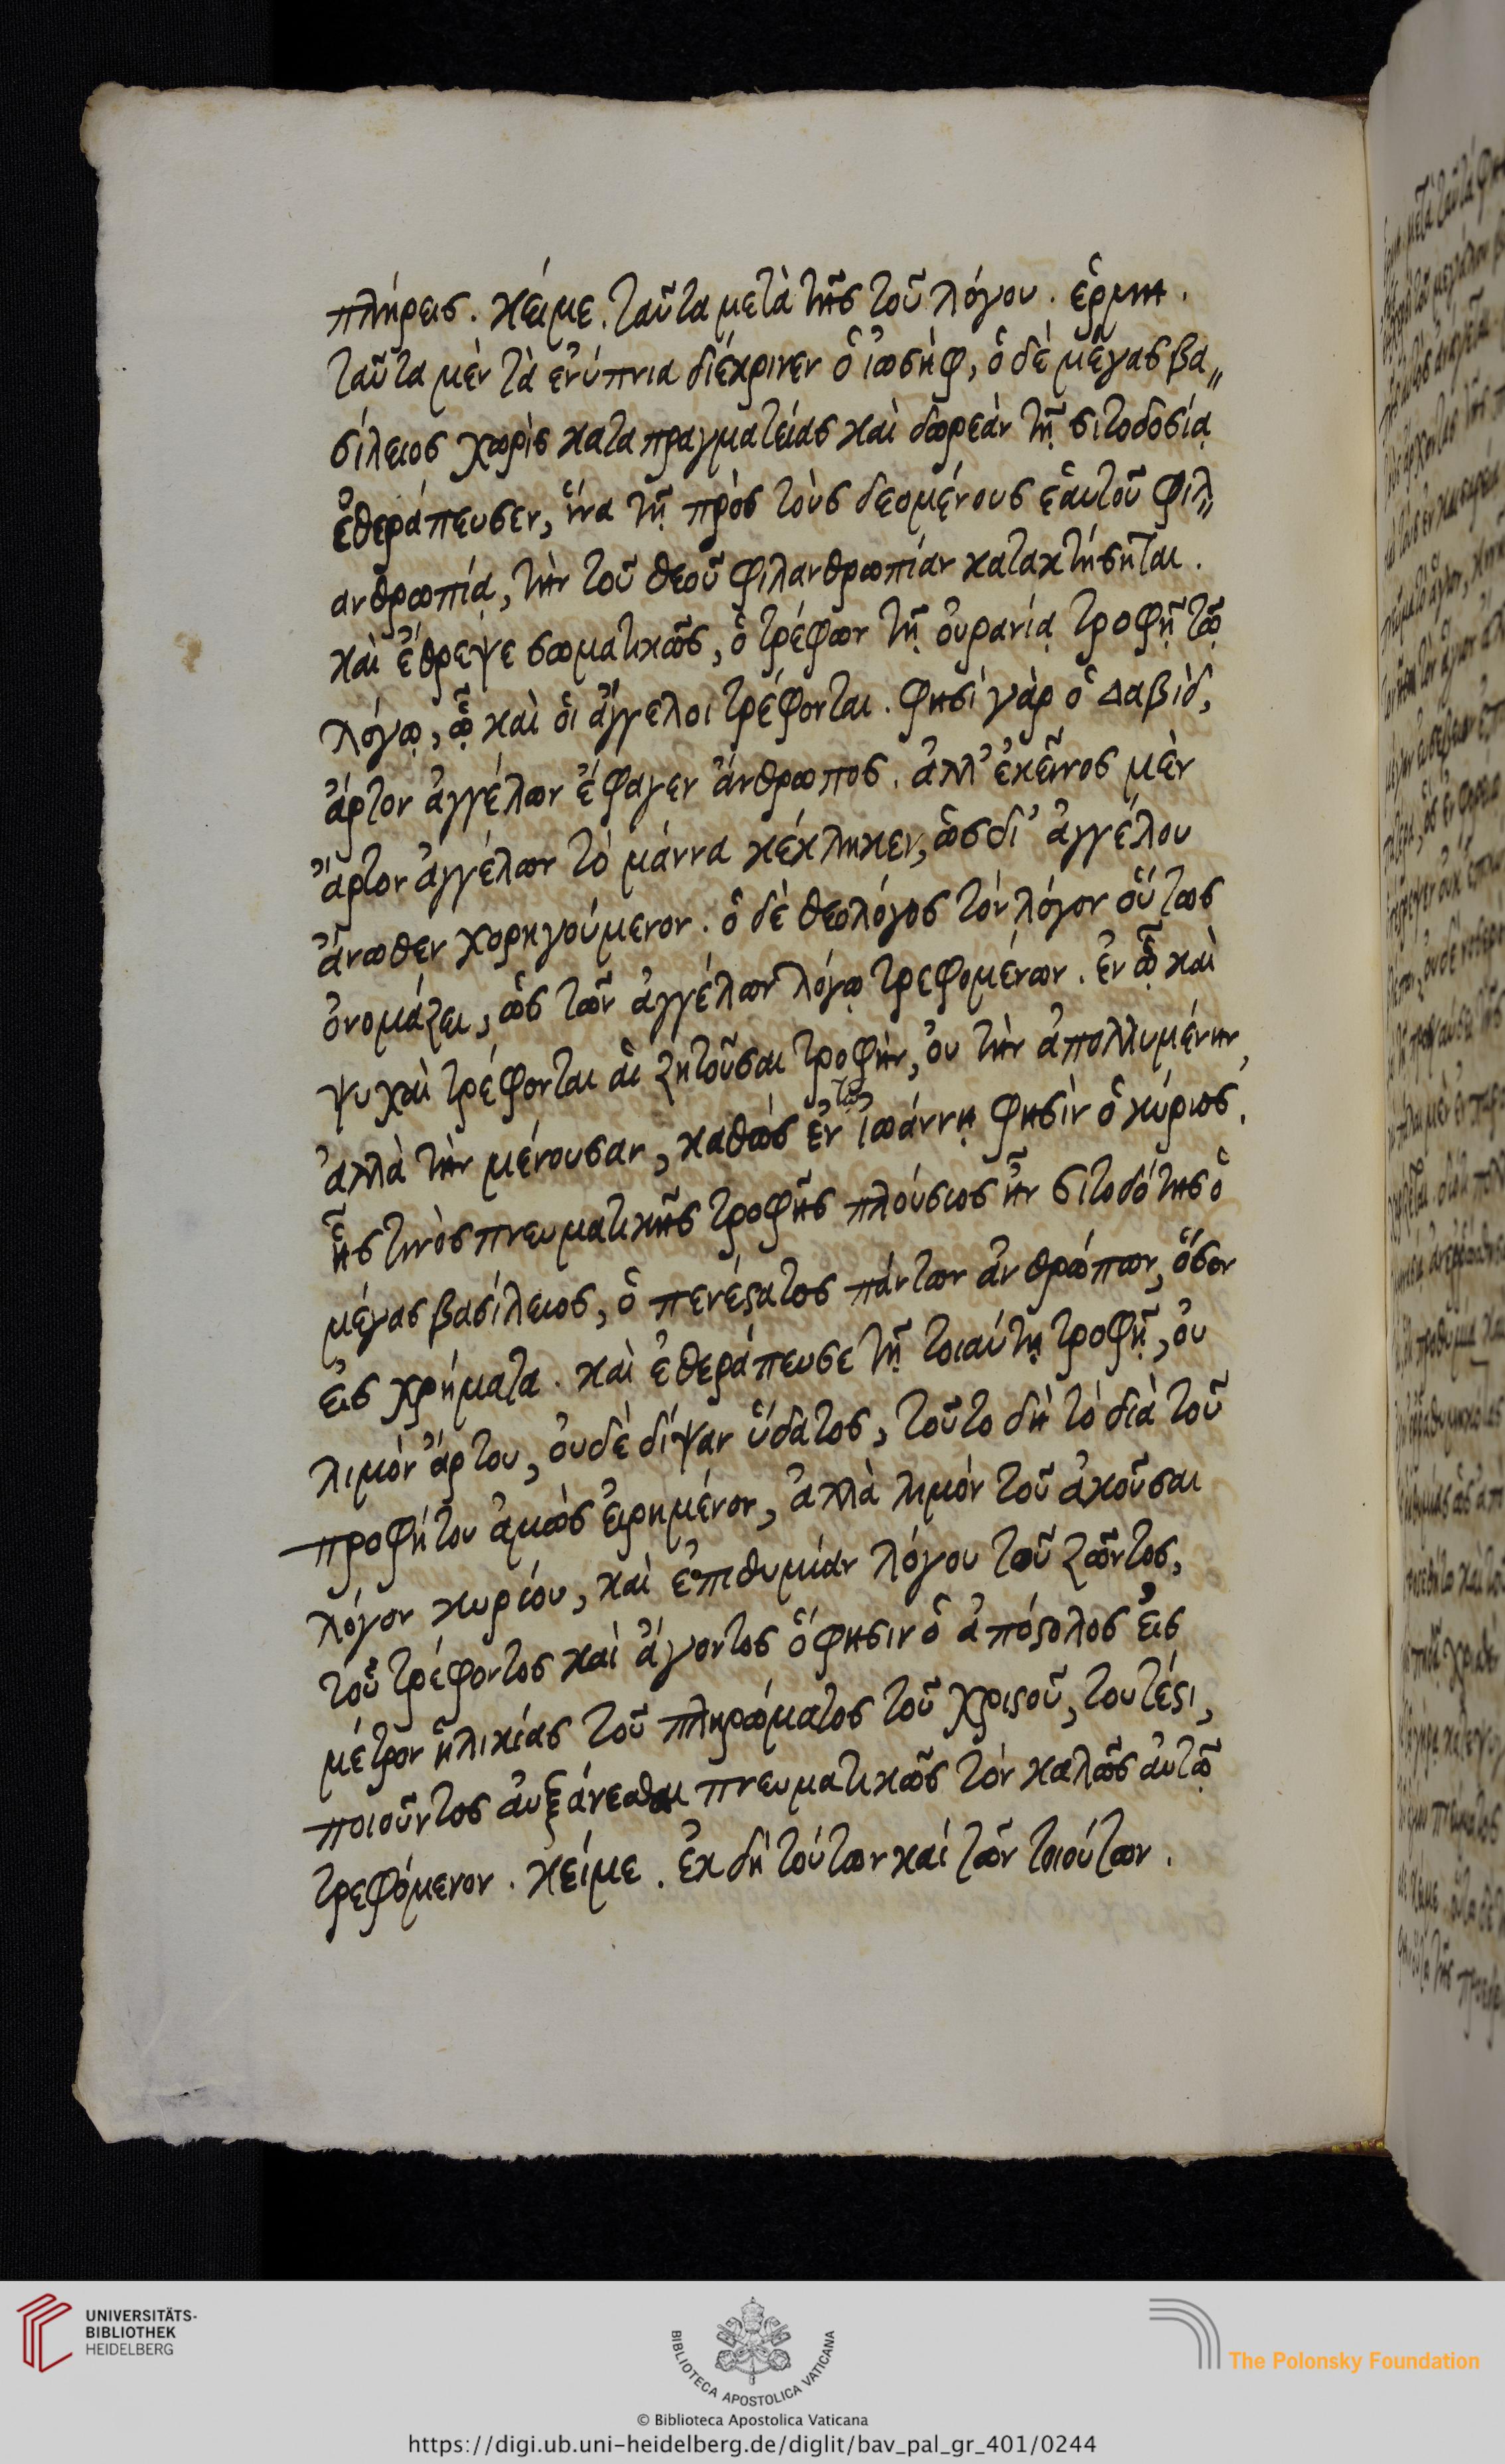 πλήρεις. κείμε. ταῦτα μετὰ τῆς τοῦ λόγου. ἑρμη.
ταῦτα μὲν τὰ ἐνύπνια διέκρινεν ὁ ἰωσὴφ, ὁ δὲ μέγας βα„
σίλειος χωρὶς καταπραγματείας καὶ δωρεὰν τῇ σιτοδοσίᾳ
ἐθεράπευσεν, ἵνα τῇ πρὸς τοὺς δεομένους ἑαυτοῦ φιλ„
ανθρωπίᾳ, τὴν τοῦ θεοῦ φιλανθρωπίαν κατακτήσηται.
καὶ ἔθρεψε σωματικῶς, ὁ τρέφων τῇ οὐρανίᾳ τροφῇ τῷ
λόγῳ, ᾧ καὶ οἱ ἄγγελοι τρέφονται. φησὶ γὰρ ὁ Δαβὶδ,
ἄρτον ἀγγέλων ἔφαγεν ἄνθρωπος. ἀλλ' ἐκεῖνος μὲν
ἄρτον ἀγγέλων τὸ μάννα κέκληκεν, ὡς δι' ἀγγέλου
ἄνωθεν χορηγούμενον. ὁ δὲ θεολόγος τὸν λόγον οὕτως
ὀνομάζει, ὡς τῶν ἀγγέλων λόγῳ τρεφομένων. ἐν ᾧ καὶ
ψυχαὶ τρέφονται αἱ ζητοῦσαι τροφὴν, οὐ τὴν ἀπολλυμένην,
ἀλλὰ τὴν μένουσαν, καθὼς ἐν τῷ ἰωάννῃ φησὶν ὁ κύριος.
ἧς τινὸς πνευματικῆς τροφῆς πλούσιος ἦν σιτοδότης ὁ
μέγας βασίλειος, ὁ πενέϛατος πάντων ἀνθρώπων, ὅσον
εἰς χρήματα. καὶ ἐθεράπευσε τῇ τοιαύτῃ τροφῇ, οὐ
λιμὸν ἄρτου, οὐδὲ δίψαν ὕδατος, τοῦτο δὴ τὸ διὰ τοῦ
προφήτου ἀμὼς εἰρημένον, ἀλλὰ λιμὸν τοῦ ἀκοῦσαι
λόγον κυρίου, καὶ ἐπιθυμίαν λόγου τοῦ ζῶντος,
τοῦ τρέφοντος καὶ ἄγοντος ὅ φησιν ὁ ἀπόϛολος εἰς
μέτρον ἡλικίας τοῦ πληρώματος τοῦ χριϛοῦ, τουτέϛι,
ποιοῦντος αὐξάνεσθαι πνευματικῶς τὸν καλῶς αὐτῷ
τρεφόμενον. κείμε. ἐκ δὴ τούτων καὶ τῶν τοιούτων.
UNIVERSITÄTS-
BIBLIOTHEK
HEIDELBERG
BIBLIOTECA APOSTOLICA VATICANA
The Polonsky Foundation
© Biblioteca Apostolica Vaticana
https://digi.ub.uni-heidelberg.de/diglit/bav_pal_gr_401/0244